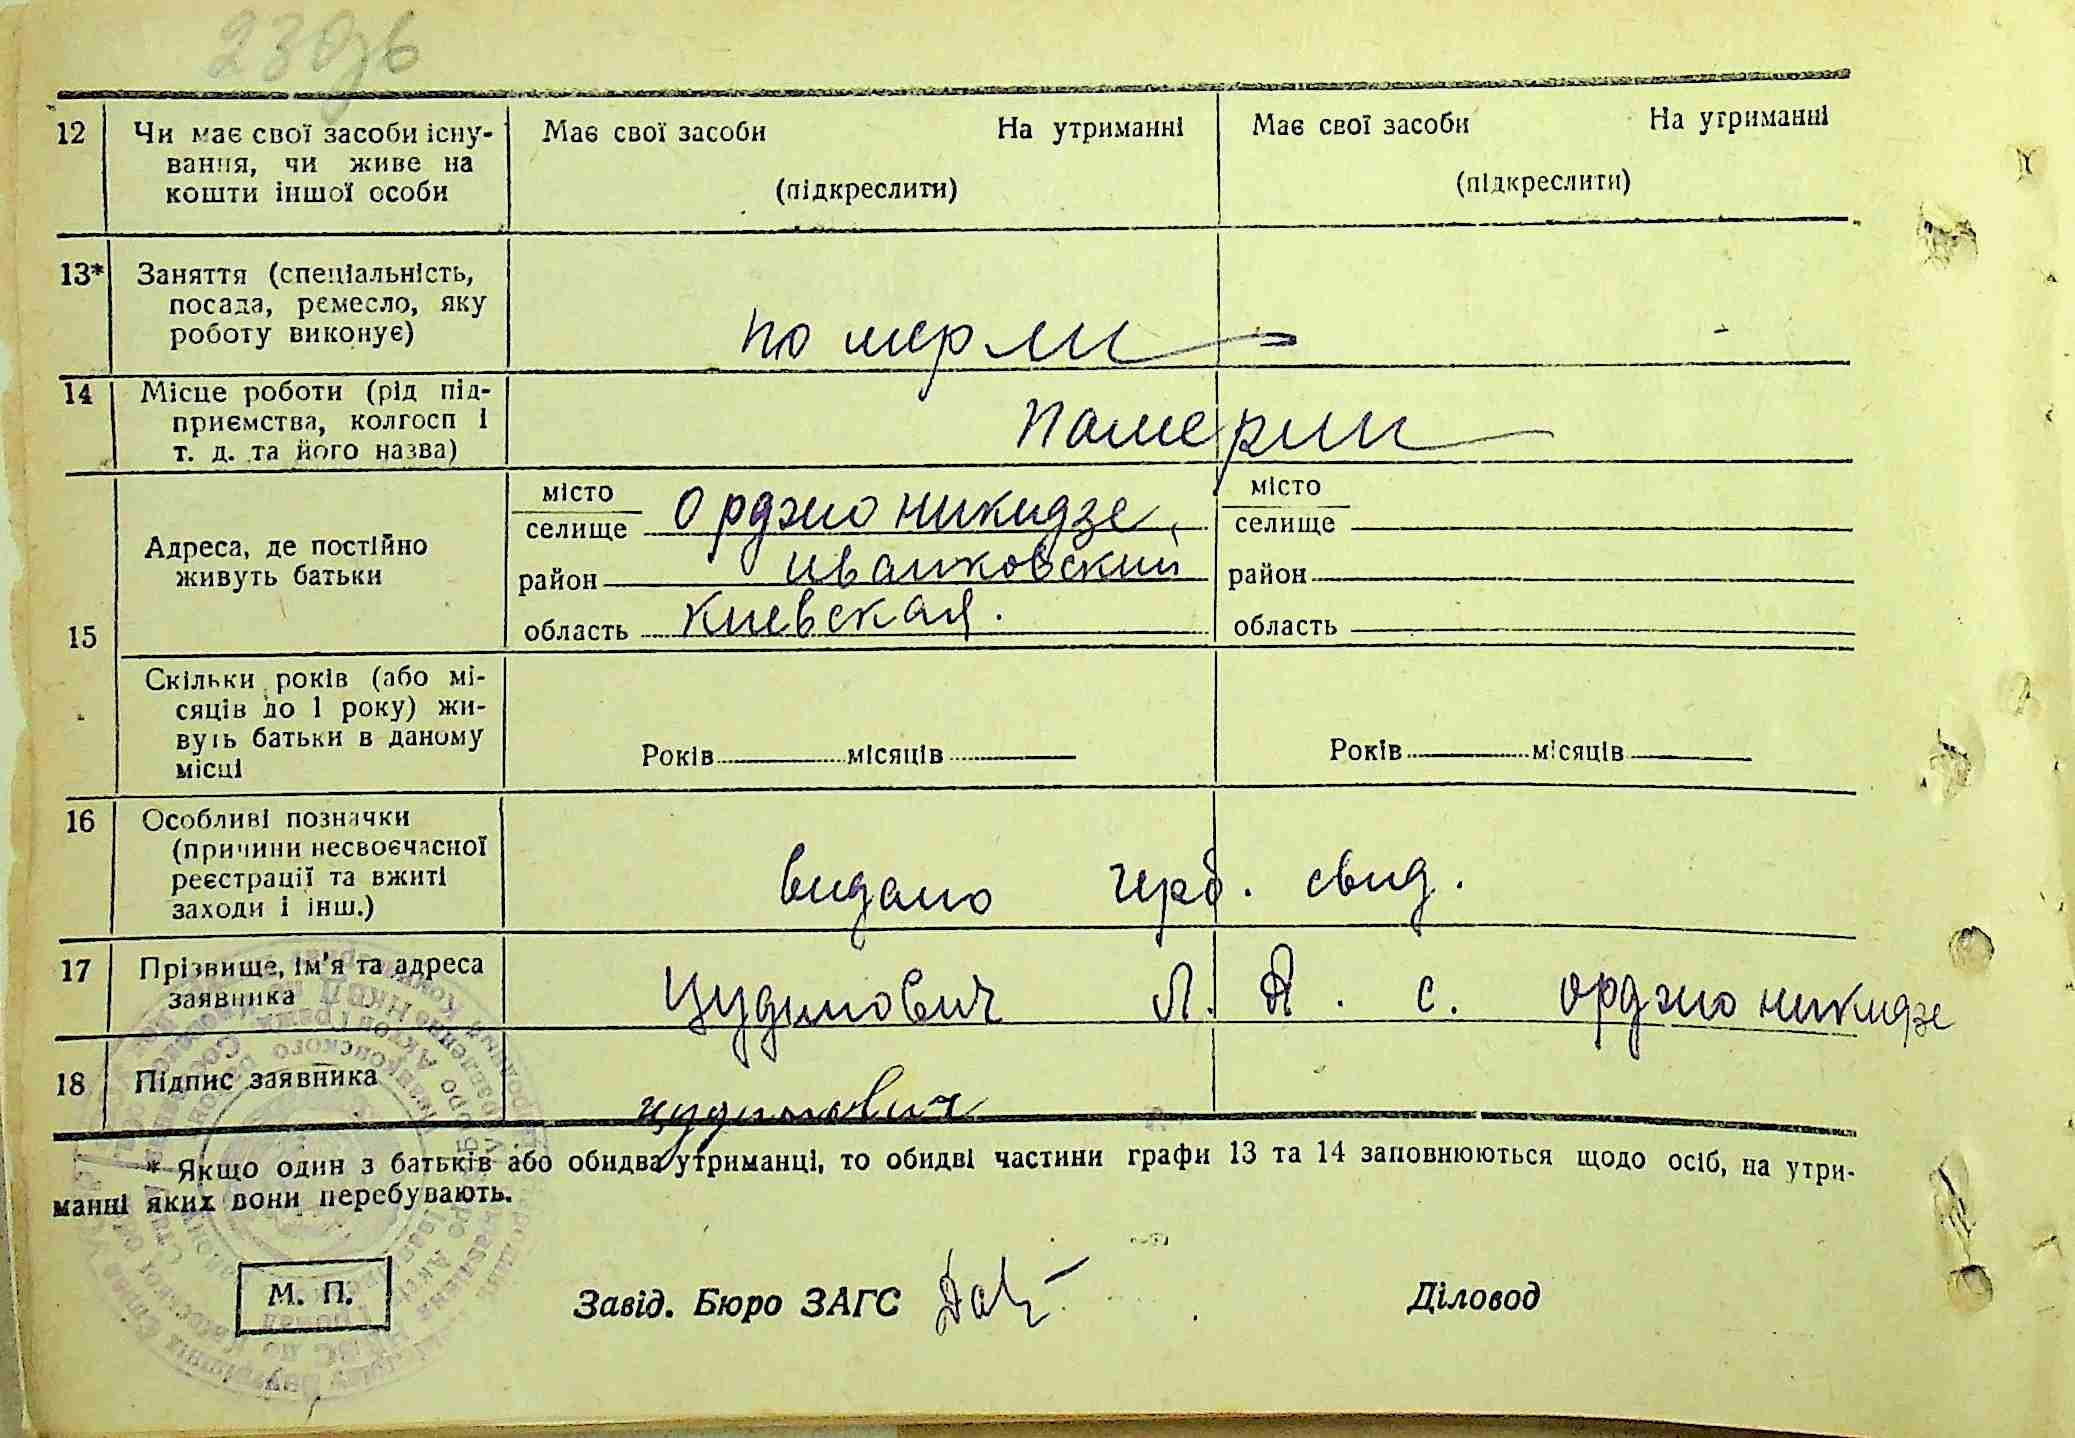 12 Чи має свої засоби існу-
вання, чи живе на
кошти іншої особи
Має свої засоби На утриманні
(підкреслити)
Має свої засоби На утриманні
(підкреслити)
13* Заняття (спеціальність,
посада, ремесло, яку
роботу виконує)
померли
14 Місце роботи (рід під-
приємства, колгосп і
т. д. та його назва)
померли
15
Адреса, де постійно
живуть батьки
місто
селище Орджоникидзе,
район иванковский
область Киевская.
місто
селище
район
область
Скільки років (або мі-
сяців до 1 року) жи-
вуть батьки в даному
місці
Років місяців
Років місяців
16 Особливі позначки
(причини несвоєчасної
реєстрації та вжиті
заходи і інш.)
видано герб. свид.
17 Прізвище, ім'я та адреса
заявника
Цудинович Л. Я. с. орджоникидзе
18 Підпис заявника
цудинович
* Якщо один з батьків або обидва утриманці, то обидві частини графи 13 та 14 заповнюються щодо осіб, на утри-
манні яких вони перебувають.
М. П.
Завід. Бюро ЗАГС
Діловод